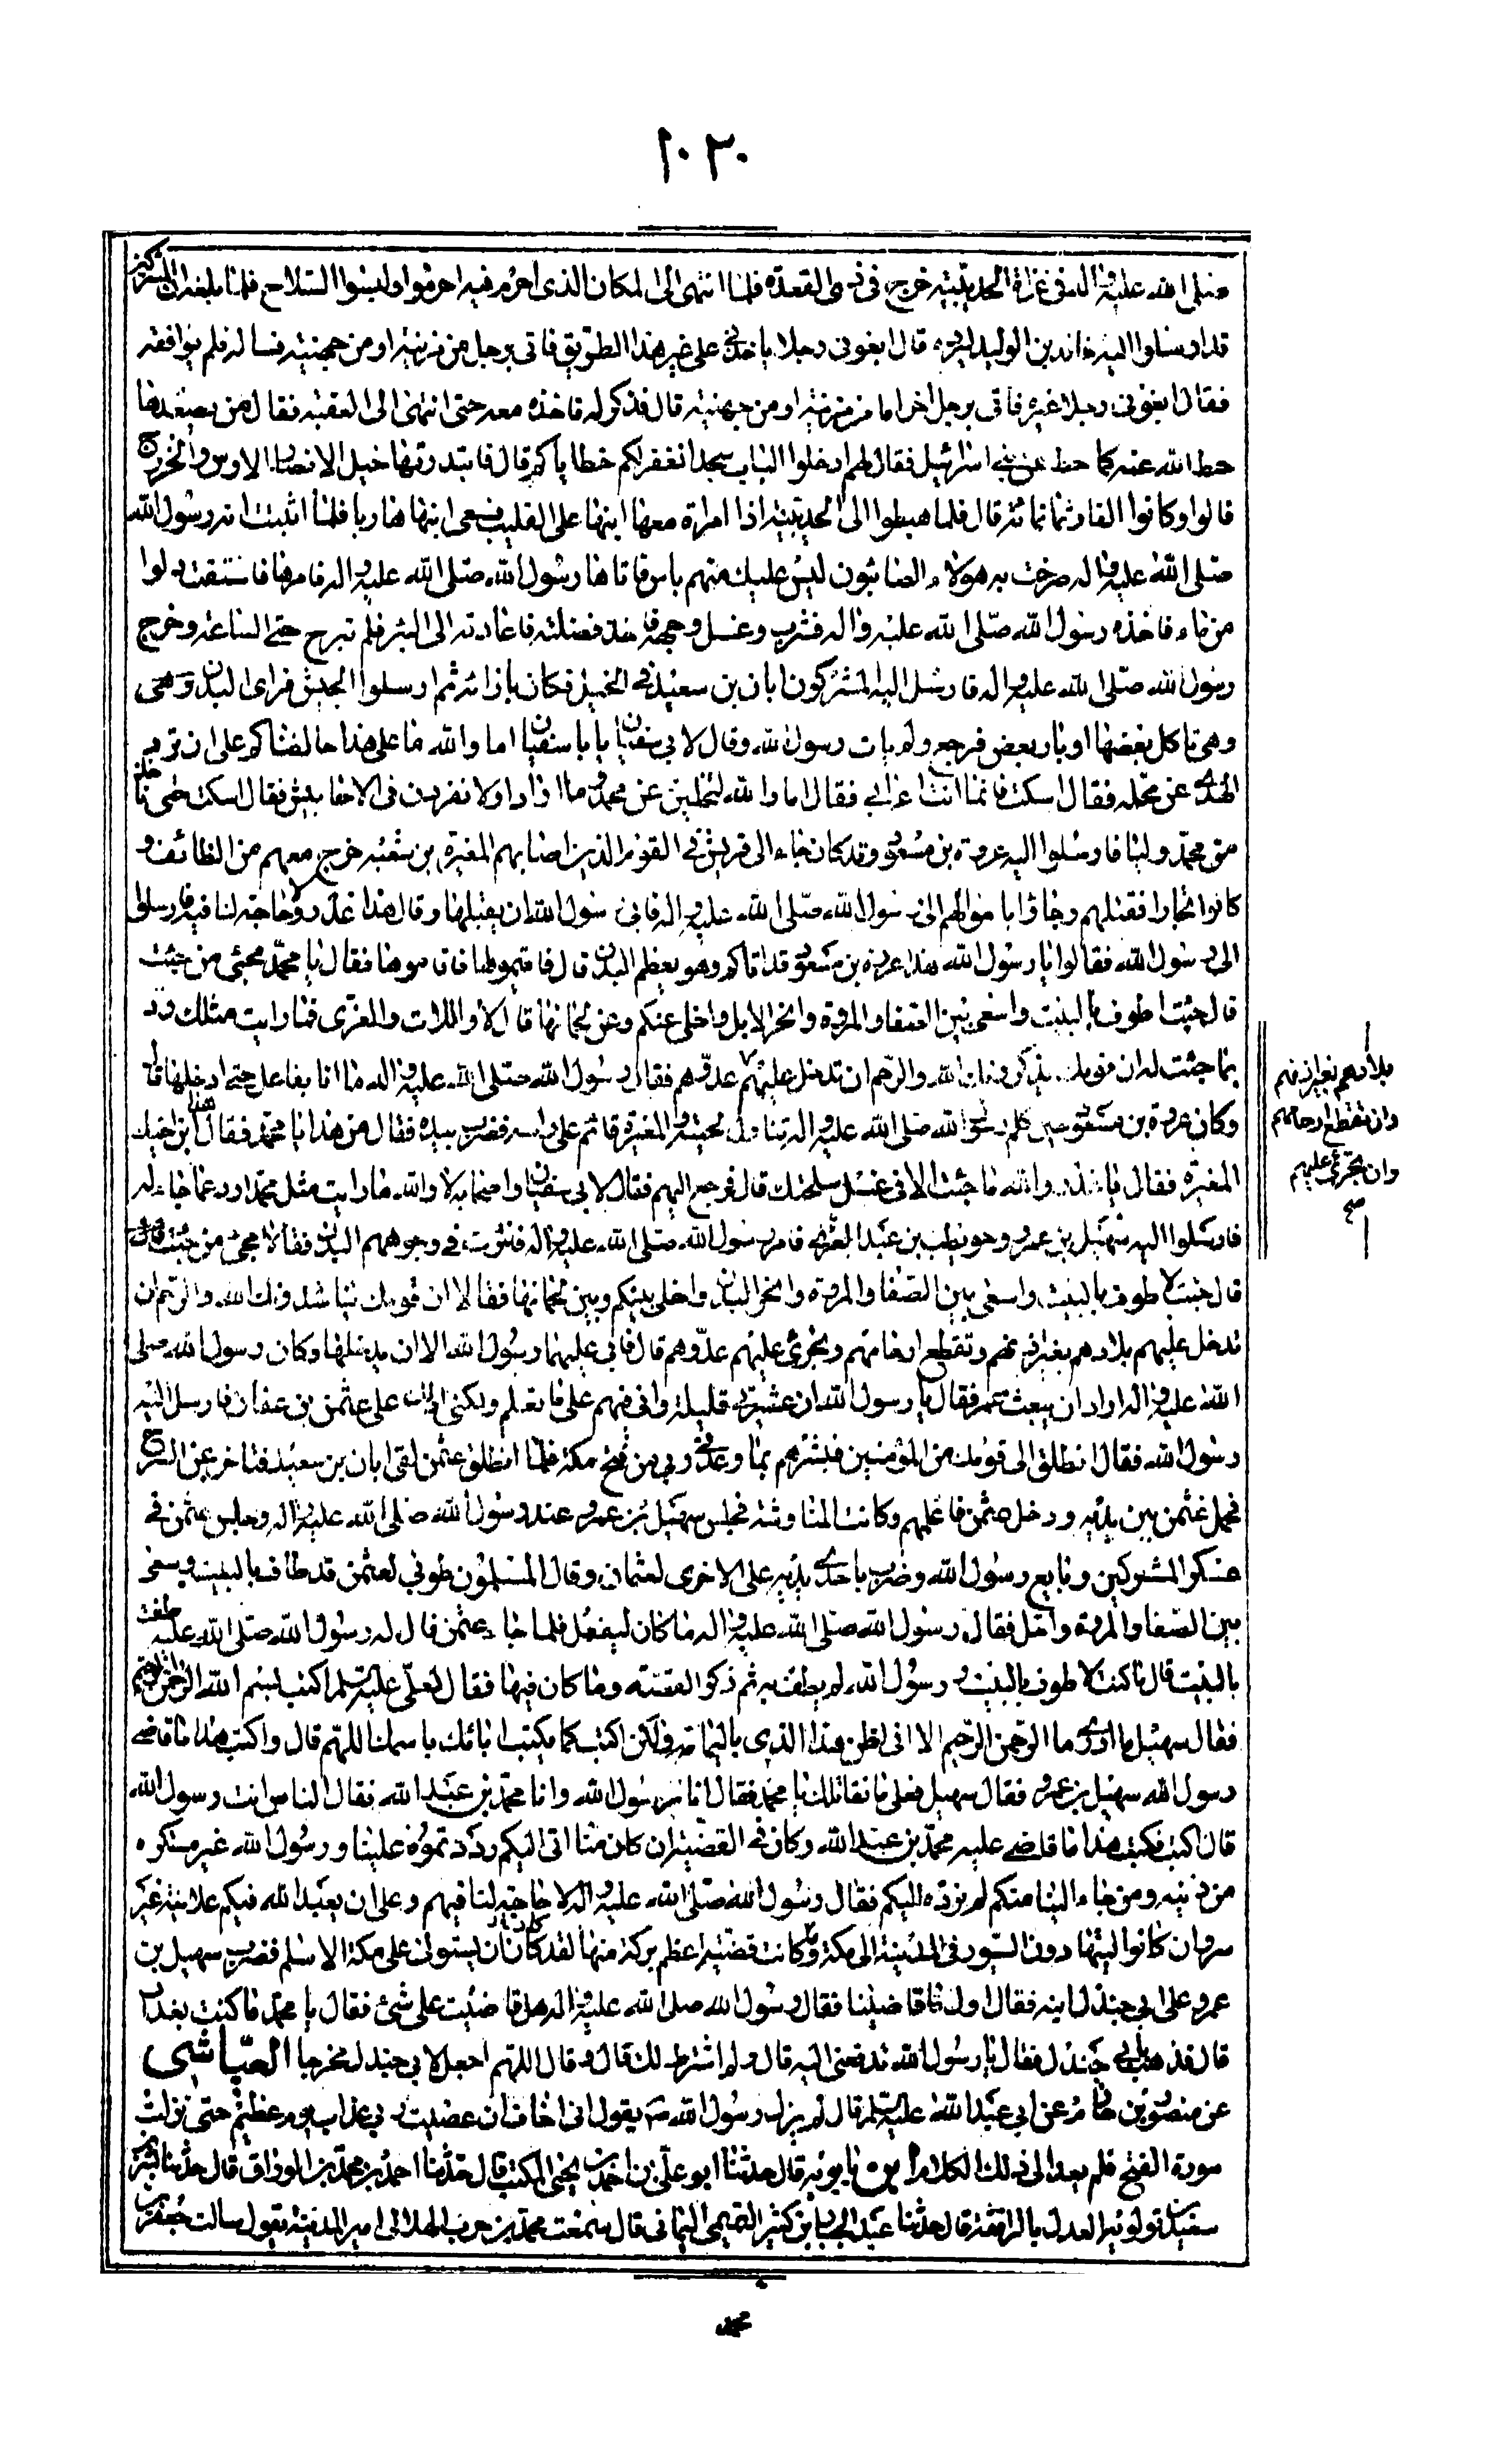 ١٠٢٠
صلى الله عليه واله فى غزاة الحديبية خرج فى ذى القعدة فلما انتهى الى المكان الذى احرم فيه احرموا ولبسوا السلاح فلما بلغه ان المشركين
قد ارسلوا اليه خالد بن الوليد ليرده قال ابغونى رجلا ياخذنى على غير هذا الطريق فاتى برجل من مزينة او من جهينة فساله فلم يوافقه
فقال ابغونى رجلا غيره فاتى برجل اخر اما من مزينة او من جهينة قال فذكر له فاخذه معه حتى انتهى الى العقبة فقال من يصعدها
حط الله عنه كما حط عن بنى اسرائيل فقال لهم ادخلوا الباب سجدا نغفر لكم خطاياكم قال فابتدرتها خيل الانصار الاوس والخزرج
قالوا وكانوا الفا وثمانمائة قال فلما هبطوا الى الحديبية اذا امراة معها ابنها على القليب فسعى ابنها هاربا فلما اثبتت انه رسول الله
صلى الله عليه واله صرخت به هولاء الصابئون ليس عليك منهم باس فاتاها رسول الله صلى الله عليه واله فامرها فاستقت دلوا
من ماء فاخذه رسول الله صلى الله عليه واله فشرب وغسل وجهه فاخذت فضلته فاعادته الى البئر فلم تبرح حتى الساعة وخرج
رسول الله صلى الله عليه واله فارسل اليه المشركون ابان بن سعيد فى الخيل فكان بازائه ثم ارسلوا الجيش فراى البدن وهى
وهى تاكل بعضها اوبار بعض فرجع ولم يات رسول الله وقال لابى سفيان يا با سفيان اما والله ما على هذا حالفناكم على ان تردوا
الهدى عن محله فقال اسكت فانما انت اعرابى فقال اما والله لتخلين عن محمد وما اراد او لانفردن فى الاحابيش فقال اسكت حتى ناخذ
من محمد ولثا فارسلوا اليه عروة بن مسعود وقد كان جاء الى قريش فى القوم الذين اصابهم المغيرة بن شعبة خرج معهم من الطائف و
كانوا تجارا فقتلهم وجاء باموالهم الى رسول الله صلى الله عليه واله فابى رسول الله ان يقبلها وقال هذا غدر ولا حاجة لنا فيه فارسلوا
الى رسول الله فقالوا يا رسول الله هذا عروة بن مسعود قد اتاكم وهو يعظم البدن قال فاقيموها فاقاموها فقال يا محمد مجئ من جئت
قال جئت اطوف بالبيت واسعى بين الصفا والمروة وانحر الابل واخلى عنكم وعن لحمانها قال لا واللات والعزى فما رايت مثلك رد
عما جئت له ان قومك يذكرونك الله والرحم ان تدخل عليهم عدوهم فقال رسول الله صلى الله عليه واله ما انا بفاعل حتى ادخلها قال
بلادهم بغير اذنهم
وان تقطع ارحامهم
وان تجترى عليهم
صح
وكان عروة بن مسعود حين كلم رسول الله صلى الله عليه واله تناول لحيته والمغيرة قائم على راسه فضرب بيده فقال من هذا يا محمد فقال هذا ابن اخيك
المغيرة فقال يا غدر والله ما جئت الا فى غسل سلحتك قال فرجع اليهم فقال لابى سفيان واصحابه لا والله ما رايت مثل محمد ارد عما جاء له
فارسلوا اليه سهيل بن عمرو وحويطب بن عبد العزى فامر رسول الله صلى الله عليه واله فثورت فى وجوههم البدن فقالا مجئ من جئت
قال جئت لاطوف بالبيت واسعى بين الصفا والمروة وانحر البدن واخلى بينكم وبين لحمانها فقالا ان قومك يناشدونك الله والرحم ان
تدخل عليهم بلادهم بغير اذنهم وتقطع ارحامهم وتجرى عليهم عدوهم قال فابى عليهما رسول الله الا ان يدخلها وكان رسول الله صلى
الله عليه واله اراد ان يبعث عمر فقال يا رسول الله ان عشيرتى قليلة وانى فيهم على ما تعلم ولكنى ادلك على عثمن بن عفان فارسل اليه
رسول الله فقال انطلق الى قومك من المؤمنين فبشرهم بما وعدنى ربى من فتح مكة فلما انطلق عثمن لقى ابان بن سعيد فتاخر عن السرج
فحمل عثمن بين يديه ودخل عثمن فاعلمهم وكانت المناوشة فجلس سهيل بن عمرو عند رسول الله صلى الله عليه واله وجلس عثمن فى
عسكر المشركين وبايع رسول الله وضرب باحدى يديه على الاخرى لعثمان وقال المسلمون طوبى لعثمن قد طاف بالبيت وسعى
بين الصفا والمروة واحل فقال رسول الله صلى الله عليه واله ما كان ليفعل فلما جاء عثمن قال له رسول الله صلى الله عليه اطفت
بالبيت قال ما كنت لاطوف بالبيت ورسول الله لم يطف به ثم ذكر القصة وما كان فيها فقال لعلى عليه السلم اكتب بسم الله الرحمن الرحيم
فقال سهيل ما ادرى ما الرحمن الرحيم الا انى اظن هذا الذى باليمامة ولكن اكتب كما يكتب ابائك باسمك اللهم قال واكتب هذا ما قاضى
رسول الله سهيل بن عمرو فقال سهيل فعلى ما نقاتلك يا محمد فقال انا رسول الله وانا محمد بن عبد الله فقال الناس انت رسول الله
قال اكتب فكتب هذا ما قاضى عليه محمد بن عبد الله وكان فى القضية ان كان منا اتى اليكم رددتموه علينا ورسول الله غير مستكره
من دينه ومن جاء الينا منكم لم نرده اليكم فقال رسول الله صلى الله عليه واله لا حاجة لنا فيهم وعلى ان يعبد الله فيكم علانية غير
سر وان كانوا ليتهادون السيور فى المدينة الى مكة وما كانت قضية اعظم بركة منها لقد كاد ان يستولى على مكة الاسلم فضرب سهيل بن
عمرو على ابى جندل ابنه فقال اول ما قاضينا فقال رسول الله صلى الله عليه واله هل قاضيت على شئ فقال يا محمد ما كنت بغدار
قال فذهب بابى جندل فقال يا رسول الله تدفعنى اليه قال ولم اشترط لك قال وقال اللهم اجعل لابى جندل مخرجا العياشى
عن منصور بن حازم عن ابى عبد الله عليه السلم قال لم يزل رسول الله ص يقول انى اخاف ان عصيت ربى عذاب يوم عظيم حتى نزلت
سورة الفتح فلم يعد الى ذلك الكلام ابن بابويه قال حدثنا ابو على بن احمد بن يحيى المكتب قال حدثنا احمد بن محمد بن الوراق قال حدثنا بشر بن
سعيد بن قولويه العدل بالرافقة قال حدثنا عبد الجبار بن كثير التميمى اليمانى قال سمعت محمد بن حرب الهلالى امير المدينة يقول سالت جعفر بن
محمد